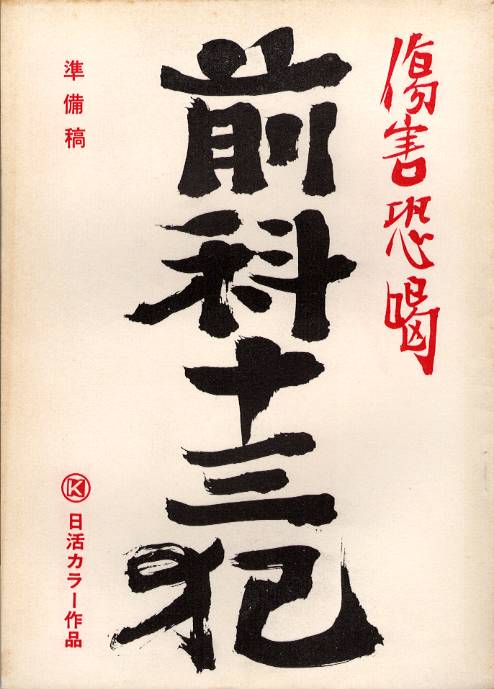 傷害恐喝
前科十三犯
準備稿
Ⓚ日活カラー作品